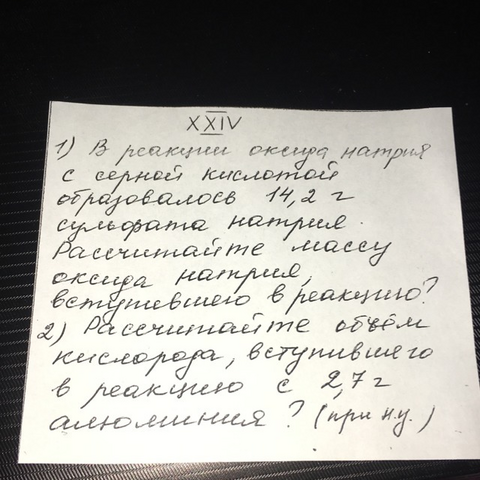 XXIV
1) В реакции оксида натрия
с серной кислотой
образовалось 14,2 г
сульфата натрия.
Рассчитайте массу
оксида натрия,
вступившего в реакцию?
2) Рассчитайте объём
кислорода, вступившего
в реакцию с 2,7 г
алюминия? (при н.у.)